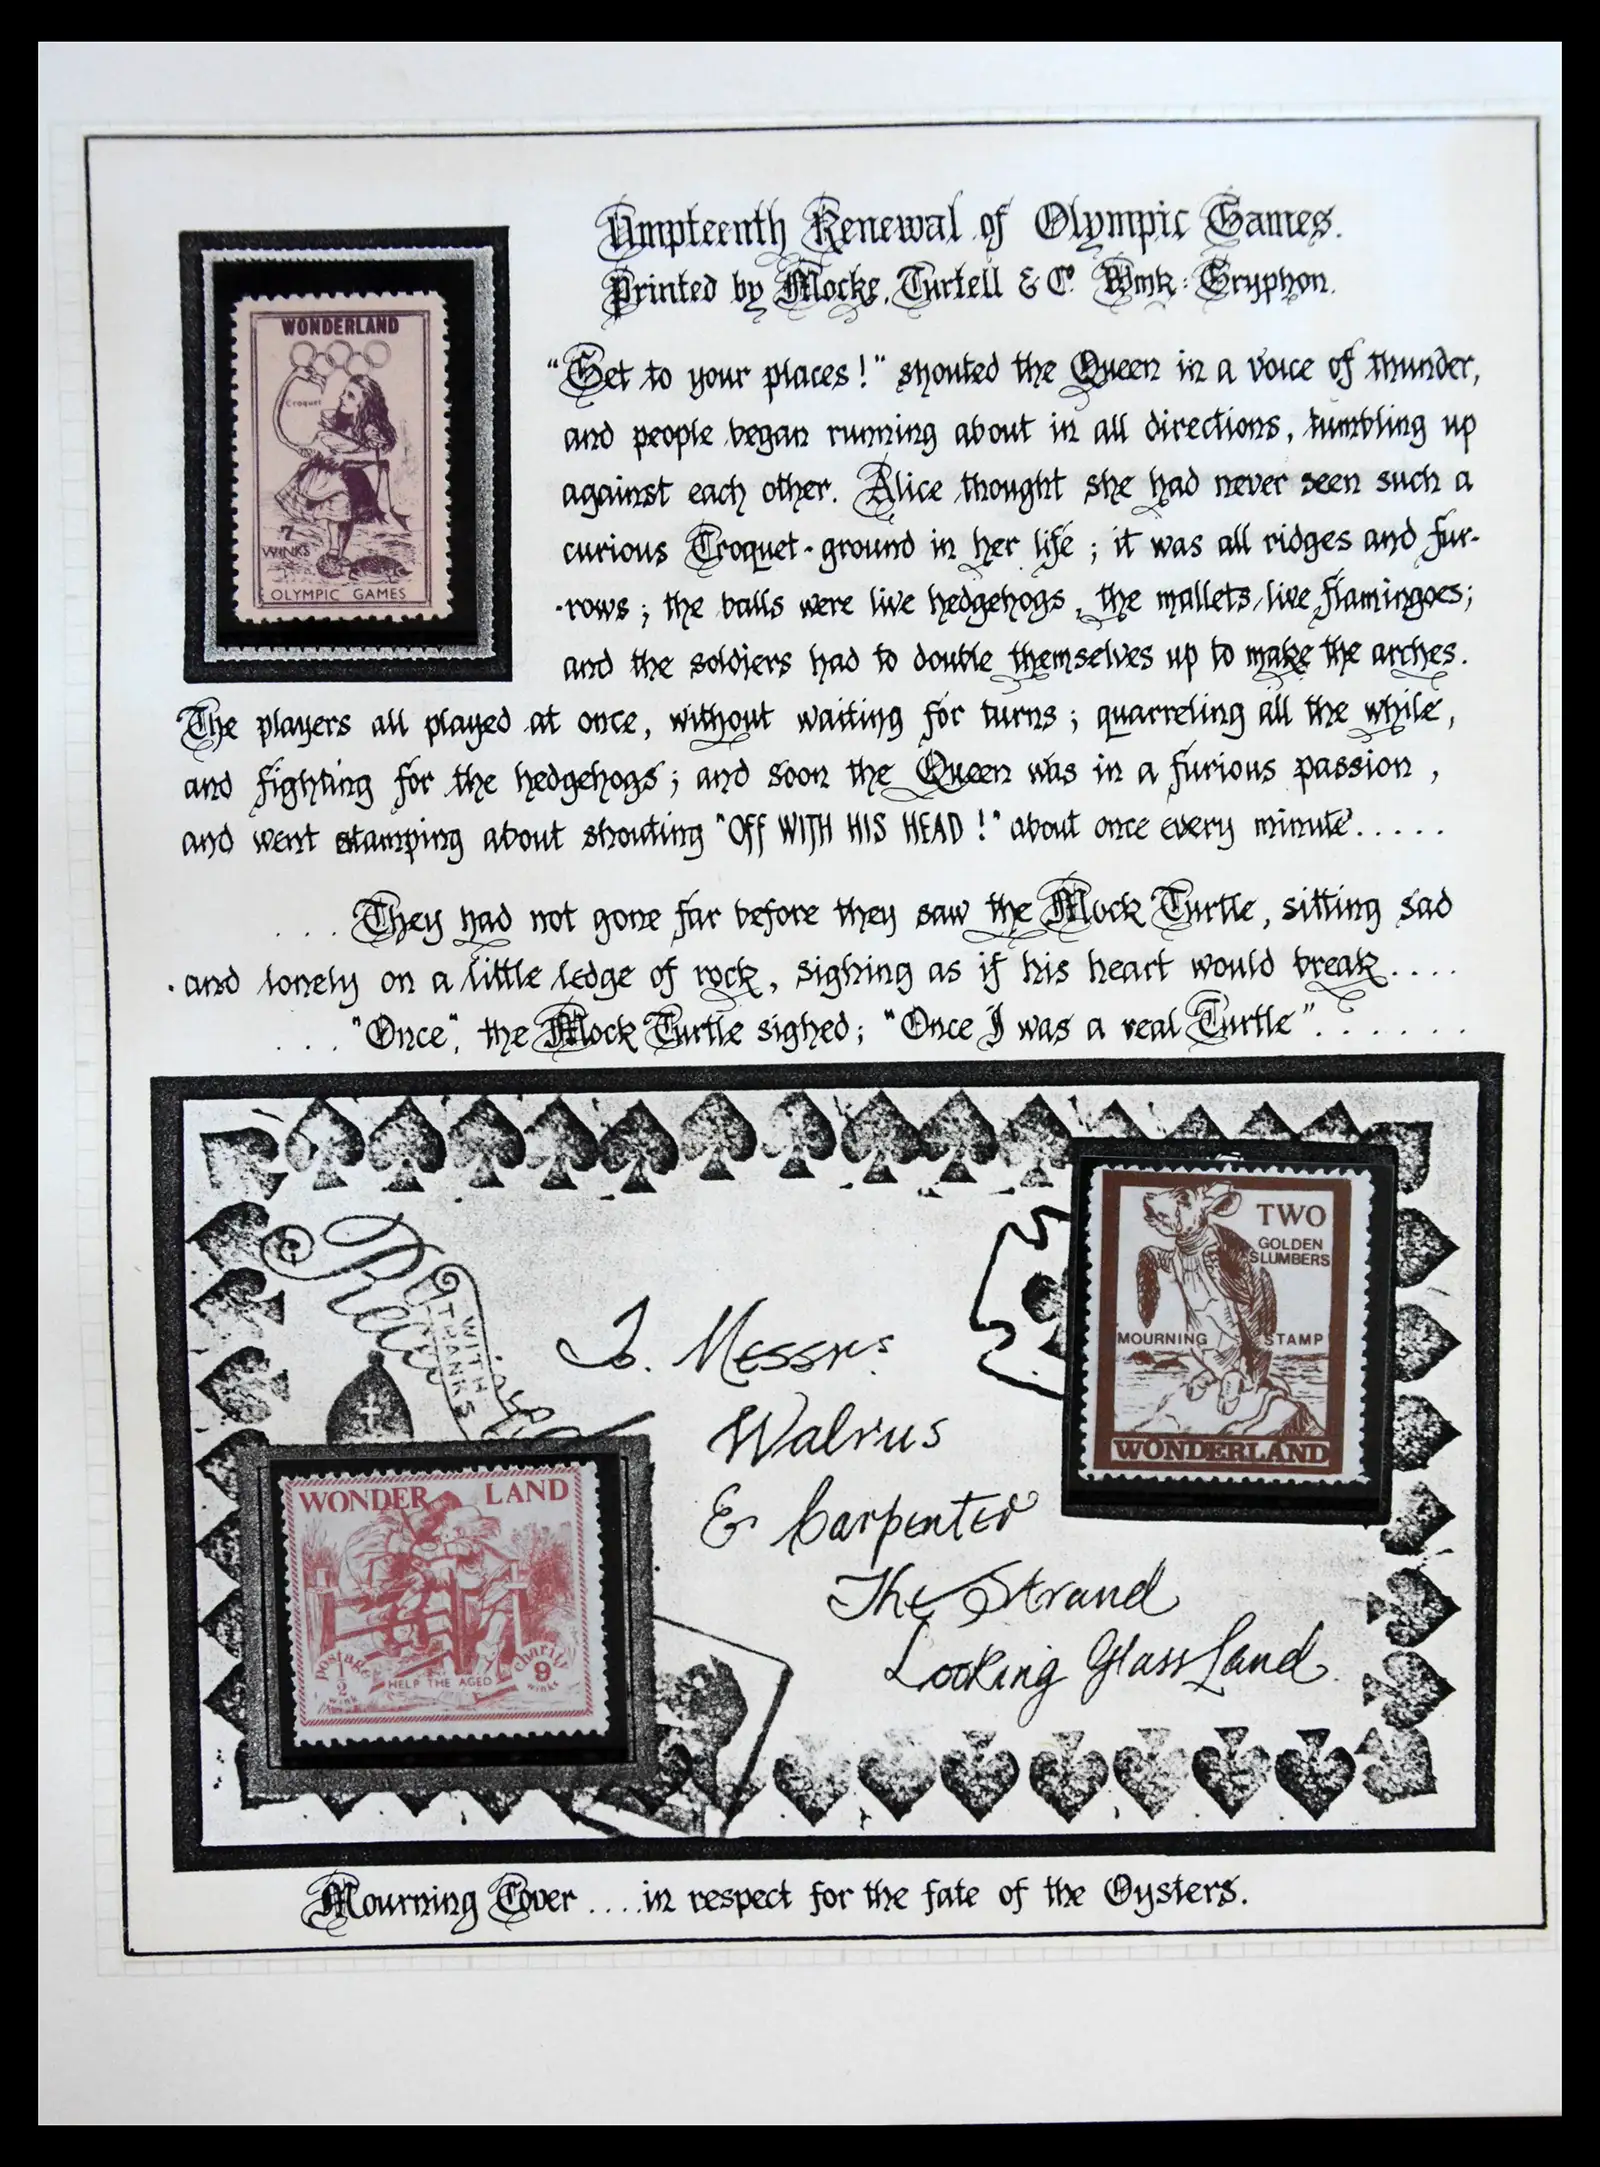 Umpteenth Renewal of Olympic Games.
Printed by Mocke, Turtell & Co. Wmk: Gryphon.
WONDERLAND
Croquet
7
WINKS
OLYMPIC GAMES
"Get to your places!" shouted the Queen in a voice of thunder,
and people began running about in all directions, tumbling up
against each other. Alice thought she had never seen such a
curious Croquet-ground in her life; it was all ridges and fur-
-rows; the balls were live hedgehogs, the mallets live flamingoes;
and the soldiers had to double themselves up to make the arches.
The players all played at once, without waiting for turns; quarreling all the while,
and fighting for the hedgehogs; and soon the Queen was in a furious passion,
and went stamping about shouting "OFF WITH HIS HEAD!" about once every minute.....
... They had not gone far before they saw the Mock Turtle, sitting sad
.and lonely on a little ledge of rock, sighing as if his heart would break....
... "Once", the Mock Turtle sighed; "Once I was a real Turtle".......
WITH
THANKS
To. Messrs:
Walrus
& Carpenter
The Strand
Looking Glass Land.
TWO
GOLDEN
SLUMBERS
MOURNING STAMP
WONDERLAND
WONDER LAND
postage
1/2
wink
HELP THE AGED
charity
9
winks
Mourning Cover ....in respect for the fate of the Oysters.